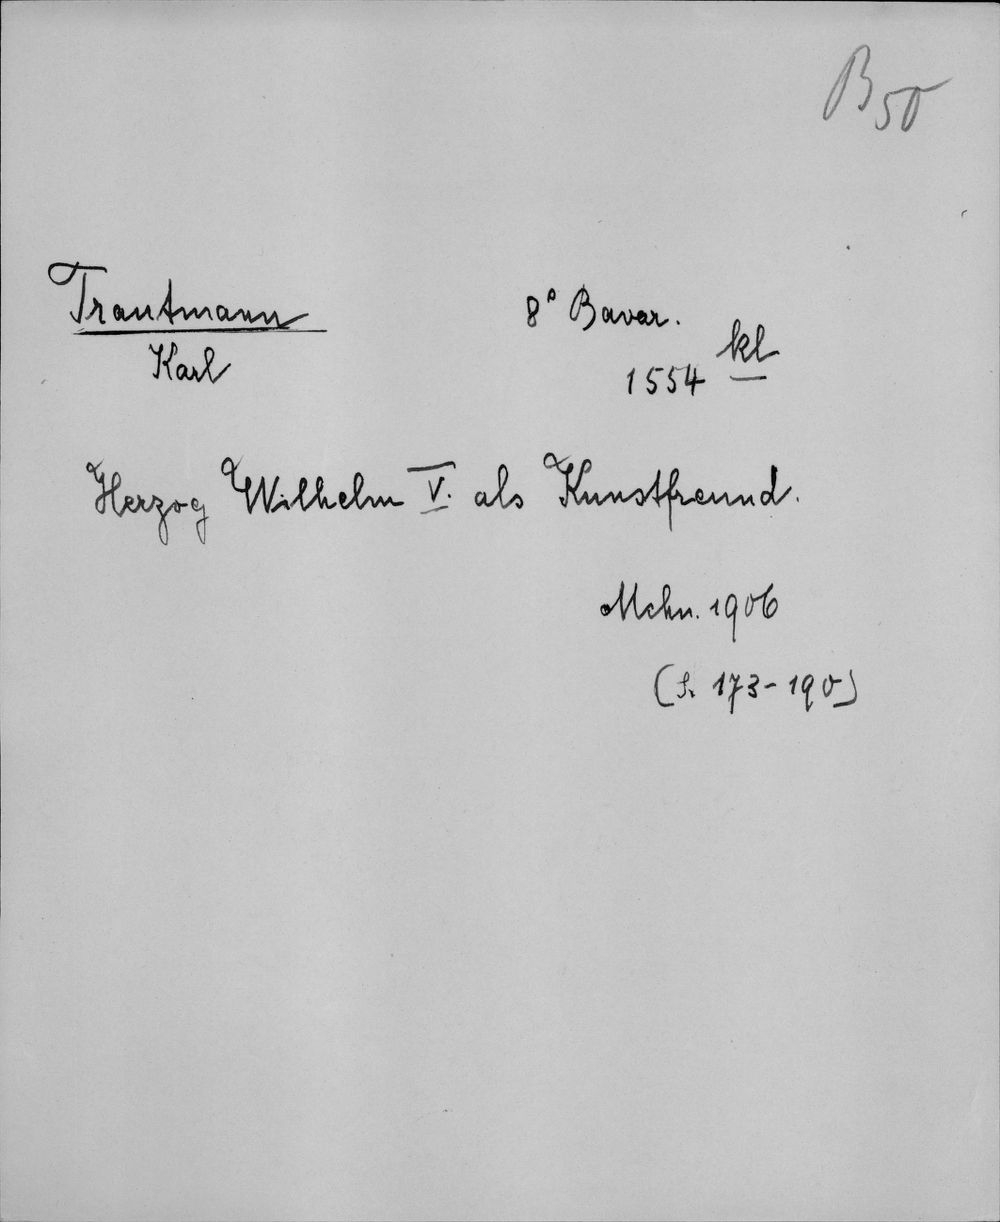 B 50
Trautmann
Karl
8° Bavar.
1554 kl
Herzog Wilhelm V. als Kunstfreund.
Mchn. 1906
(S. 173-190)